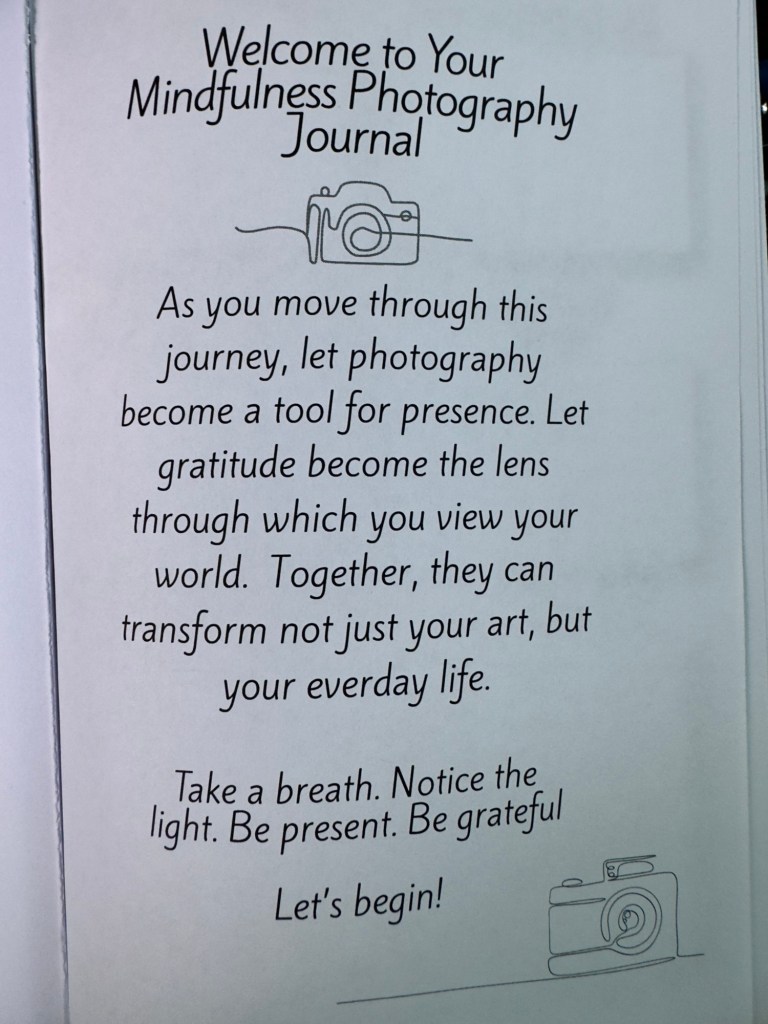 Welcome to Your
Mindfulness Photography
Journal
As you move through this
journey, let photography
become a tool for presence. Let
gratitude become the lens
through which you view your
world.  Together, they can
transform not just your art, but
your everday life.
Take a breath. Notice the
light. Be present. Be grateful
Let's begin!